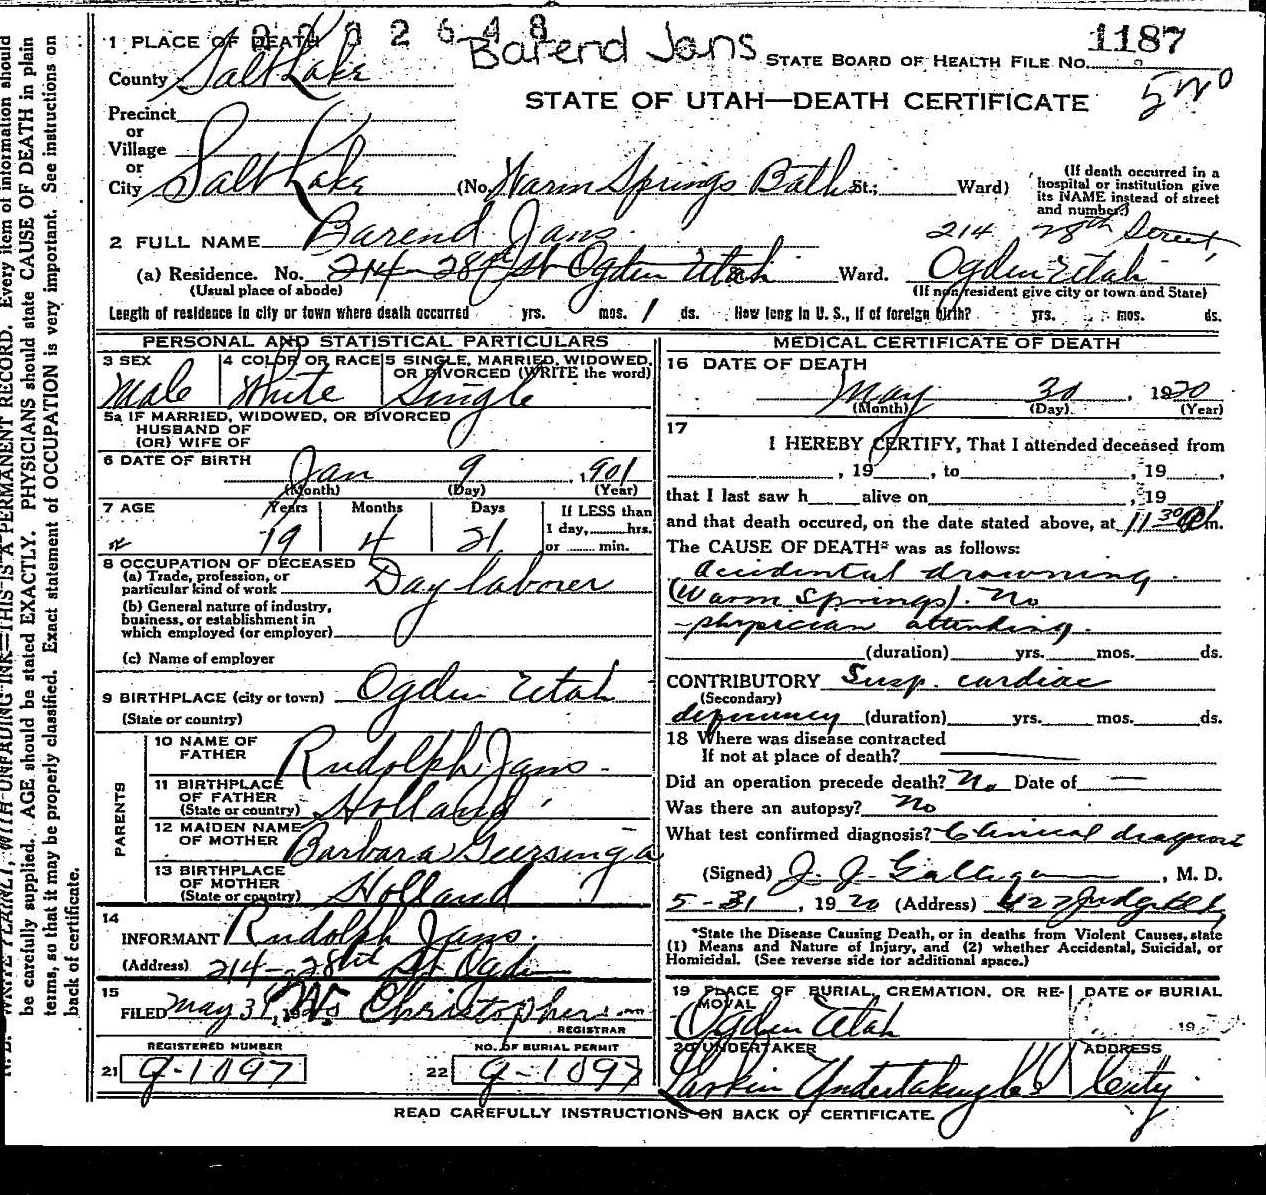 0 0 0 2 6 4 8
Barend Jans
1187
1 PLACE OF DEATH
STATE BOARD OF HEALTH FILE No.
County Salt Lake
STATE OF UTAH—DEATH CERTIFICATE
Precinct
or
Village
or
City Salt Lake (No. Warm Springs Bath St.; Ward)
(If death occurred in a hospital or institution give its NAME instead of street and number.)
2 FULL NAME Barend Jans
214 28th Street
(a) Residence. No. 214-28th St Ogden Utah Ward. Ogden Utah
(Usual place of abode) (If non resident give city or town and State)
Length of residence in city or town where death occurred yrs. mos. 1 ds. How long in U. S., if of foreign birth? yrs. mos. ds.
PERSONAL AND STATISTICAL PARTICULARS
3 SEX Male
4 COLOR OR RACE White
5 SINGLE, MARRIED, WIDOWED, OR DIVORCED (WRITE the word) Single
5a IF MARRIED, WIDOWED, OR DIVORCED
HUSBAND OF
(OR) WIFE OF
6 DATE OF BIRTH Jan 9, 1901
(Month) (Day) (Year)
7 AGE Years Months Days If LESS than
19 4 21 1 day, hrs.
or min.
8 OCCUPATION OF DECEASED
(a) Trade, profession, or
particular kind of work Day laborer
(b) General nature of industry,
business, or establishment in
which employed (or employer)
(c) Name of employer
9 BIRTHPLACE (city or town) Ogden Utah
(State or country)
PARENTS
10 NAME OF FATHER Rudolph Jans
11 BIRTHPLACE OF FATHER (State or country) Holland
12 MAIDEN NAME OF MOTHER Barbara Geersinga
13 BIRTHPLACE OF MOTHER (State or country) Holland
14
INFORMANT Rudolph Jans
(Address) 214-28th St Ogden
15
FILED May 31, 19
REGISTRAR
REGISTERED NUMBER NO. OF BURIAL PERMIT
21 g-1097 22 g-1097
MEDICAL CERTIFICATE OF DEATH
16 DATE OF DEATH
May 30, 1920
(Month) (Day) (Year)
17
I HEREBY CERTIFY, That I attended deceased from
, 19 , to , 19 ,
that I last saw h alive on , 19 ,
and that death occured, on the date stated above, at 11 30 P m.
The CAUSE OF DEATH* was as follows:
Accidental drowning
(Warm Springs). No
physician attending.
(duration) yrs. mos. ds.
CONTRIBUTORY Susp. cardiac
(Secondary)
deficiency (duration) yrs. mos. ds.
18 Where was disease contracted
If not at place of death?
Did an operation precede death? No Date of —
Was there an autopsy? No
What test confirmed diagnosis? Clinical
(Signed) J. J. Galligan, M. D.
5-31, 1920 (Address) 427 Judge Bldg
*State the Disease Causing Death, or in deaths from Violent Causes, state
(1) Means and Nature of Injury, and (2) whether Accidental, Suicidal, or
Homicidal. (See reverse side for additional space.)
19 PLACE OF BURIAL, CREMATION, OR RE-
MOVAL
Ogden Utah
DATE OF BURIAL
19
20 UNDERTAKER
Larkin Undertaking Co
ADDRESS
City
READ CAREFULLY INSTRUCTIONS ON BACK OF CERTIFICATE.
WRITE PLAINLY, WITH UNFADING INK—THIS IS A PERMANENT RECORD. Every item of information should
be carefully supplied. AGE should be stated EXACTLY. PHYSICIANS should state CAUSE OF DEATH in plain
terms, so that it may be properly classified. Exact statement of OCCUPATION is very important. See instructions on
back of certificate.